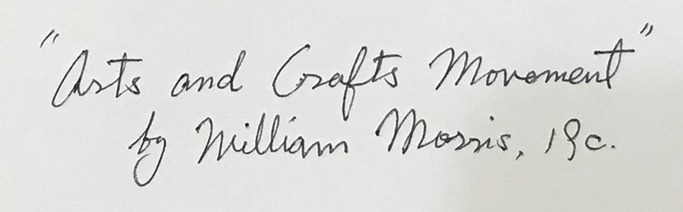 "Arts and Crafts Movement"
by William Morris, 19c.